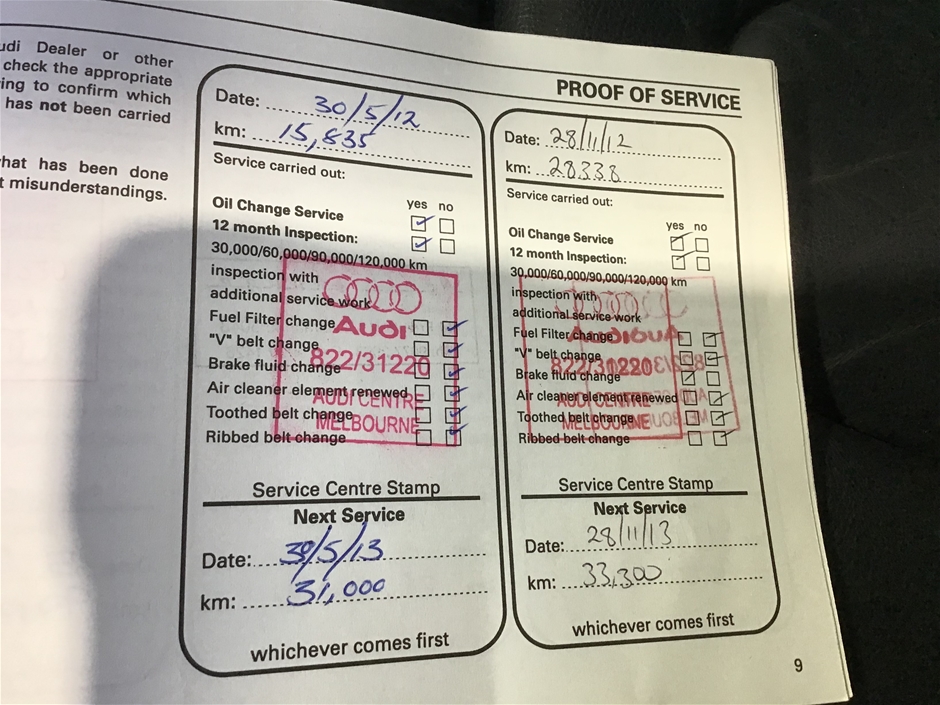 udi Dealer or other
check the appropriate
ing to confirm which
has not been carried
hat has been done
t misunderstandings.
PROOF OF SERVICE
Date: 30/5/12
km: 15,835
Service carried out:
yes no
Oil Change Service
12 month Inspection:
30,000/60,000/90,000/120,000 km
inspection with
additional service work
Fuel Filter change
"V" belt change
Brake fluid change
Air cleaner element renewed
Toothed belt change
Ribbed belt change
Audi
822/31220
AUDI CENTRE
MELBOURNE
Service Centre Stamp
Next Service
Date: 30/5/13
km: 31,000
whichever comes first
Date: 28/11/12
km: 28338
Service carried out:
yes no
Oil Change Service
12 month Inspection:
30,000/60,000/90,000/120,000 km
inspection with
additional service work
Fuel Filter change
"V" belt change
Brake fluid change
Air cleaner element renewed
Toothed belt change
Ribbed belt change
AUDI CENTRE
MELBOURNE
Service Centre Stamp
Next Service
Date: 28/11/13
km: 33,300
whichever comes first
9